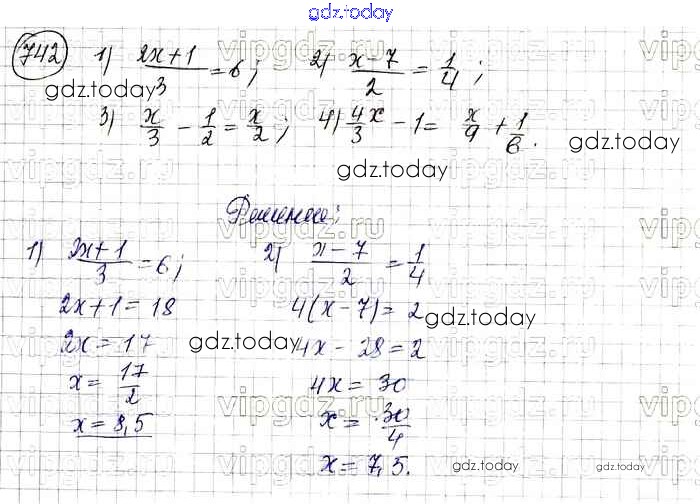 gdz.today
742 1) (2x+1)/3 = 6; 2) (x-7)/2 = 1/4;
gdz.today
3) x/3 - 1/2 = x/2; 4) 4/3 x - 1 = x/9 + 1/6.
gdz.today
gdz.today
Решение:
1) (2x+1)/3 = 6;
2x+1 = 18
2x = 17
x = 17/2
x = 8,5
2) (x-7)/2 = 1/4
4(x-7) = 2
4x - 28 = 2
4x = 30
x = 30/4
x = 7,5.
gdz.today
gdz.today
gdz.today
gdz.today
vipgdz.ru